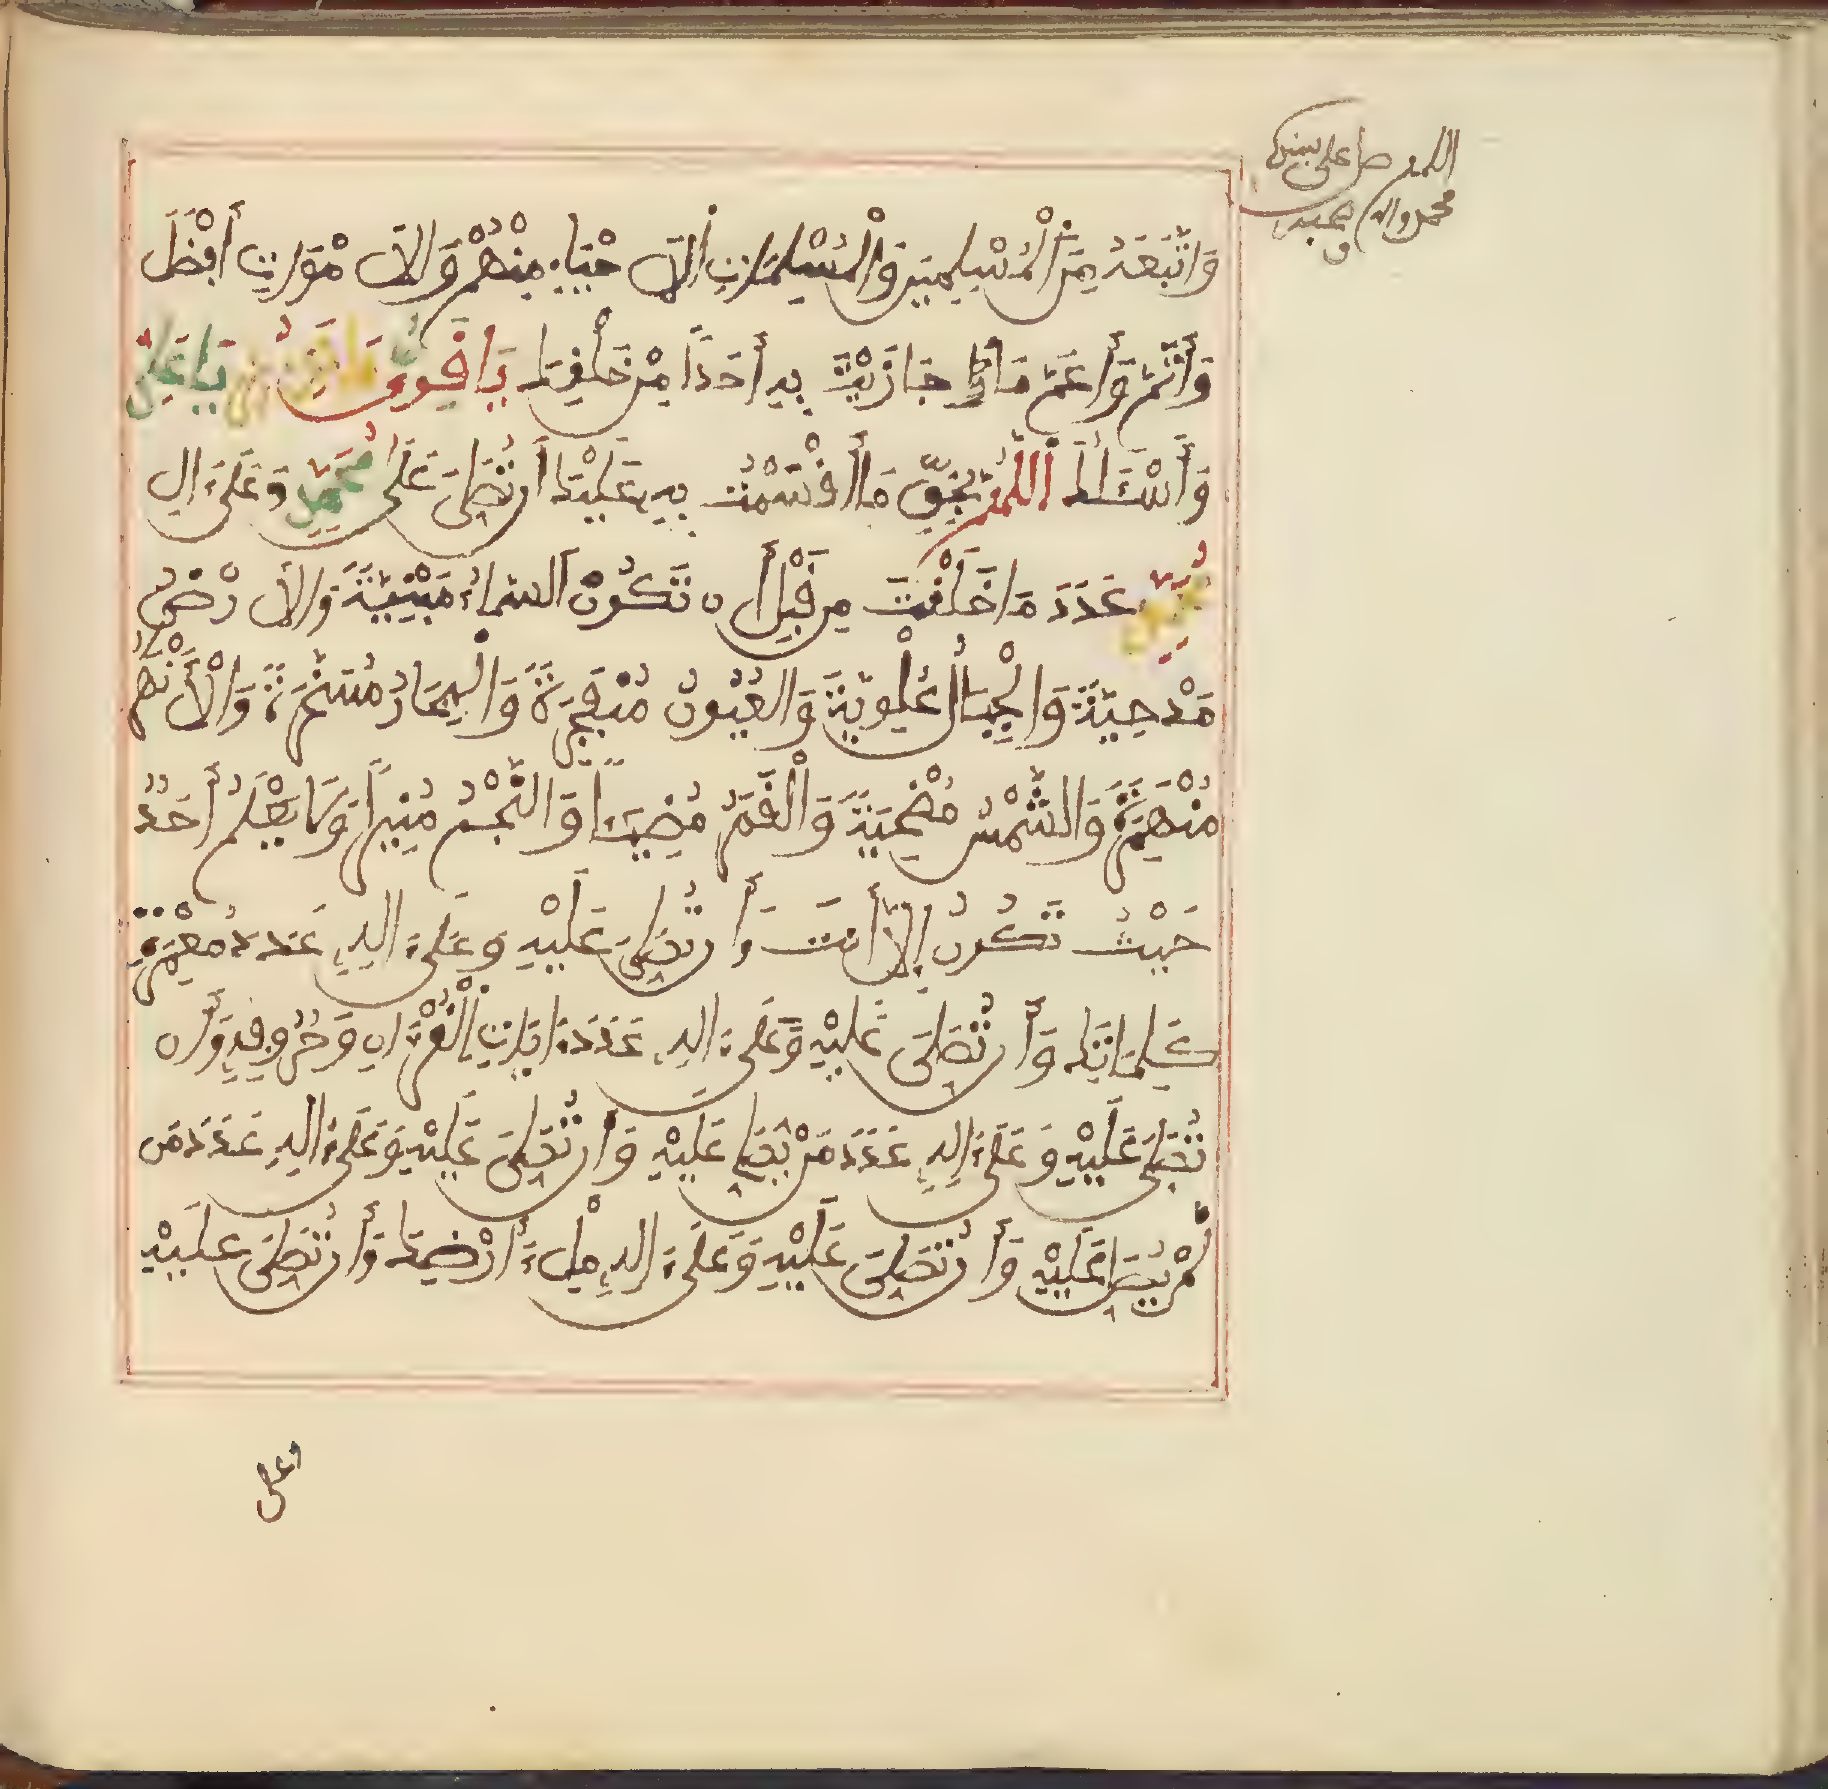 اللهم صل على سيدنا
محمد وآله وصحبه
وَاتَّبَعَهُ مِنَ الْمُسْلِمِينَ وَالْمُسْلِمَاتِ الَاحْيَاءِ مِنْهُمْ وَالَامْوَاتِ أَفْضَلَ
وَأَتَمَّ وَأَعَمَّ مَا جَازَيْتَ بِهِ أَحَدًا مِنْ خَلْفِكَ يَا قَوِىُّ يَا عَلِىُّ
وَأَسْئَلُكَ اللَّهُمَّ بِحَقِّ مَا أَقْسَمْتُ بِهِ عَلَيْكَ أَن تُصَلِّىَ عَلَى مُحَمَّدٍ وَعَلَىءَالِ
مُحَمَّدٍ عَدَدَ مَا خَلَقْتَ مِن قَبْلِ أَن تَكُونَ السَّمَاءُ مَبْنِيَّةً وَالَارْضُ
مَدْحِيَّةً وَالْجِبَالُ عُلْوِيَّةً وَالعُيُونُ مُنْفَجِرَةً وَالْبِحَارُ مُسَخَّرَةً وَالْأَنْهَارُ
مُنْهَمِرَةً وَالشَّمْسُ مُضْحِيَةً وَالْقَمَرُ مُضِيئًا وَالنَّجْمُ مُنِيرًا وَلَا يَعْلَمُ أَحَدٌ
حَيْثُ تَكُونُ إِلَّا أَنتَ وَأَن تُصَلِّىَ عَلَيْهِ وَعَلَىءَالِهِ عَدَدَ
كَلِمَاتِكَ وَأَن تُصَلِّىَ عَلَيْهِ وَعَلَىءَالِهِ عَدَدَ ءَايَاتِ الْقُرْءَانِ وَحُرُوفِهِ وَأَن
تُصَلِّىَ عَلَيْهِ وَعَلَىءَالِهِ عَدَدَ مَنْ يُصَلِّى عَلَيْهِ وَأَن تُصَلِّىَ عَلَيْهِ وَعَلَىءَالِهِ عَدَدَ مَن
لَمْ يُصَلِّ عَلَيْهِ وَأَن تُصَلِّىَ عَلَيْهِ وَعَلَىءَالِهِ مِلْءَ أَرْضِكَ وَأَن تُصَلِّىَ عَلَيْهِ
وعلى